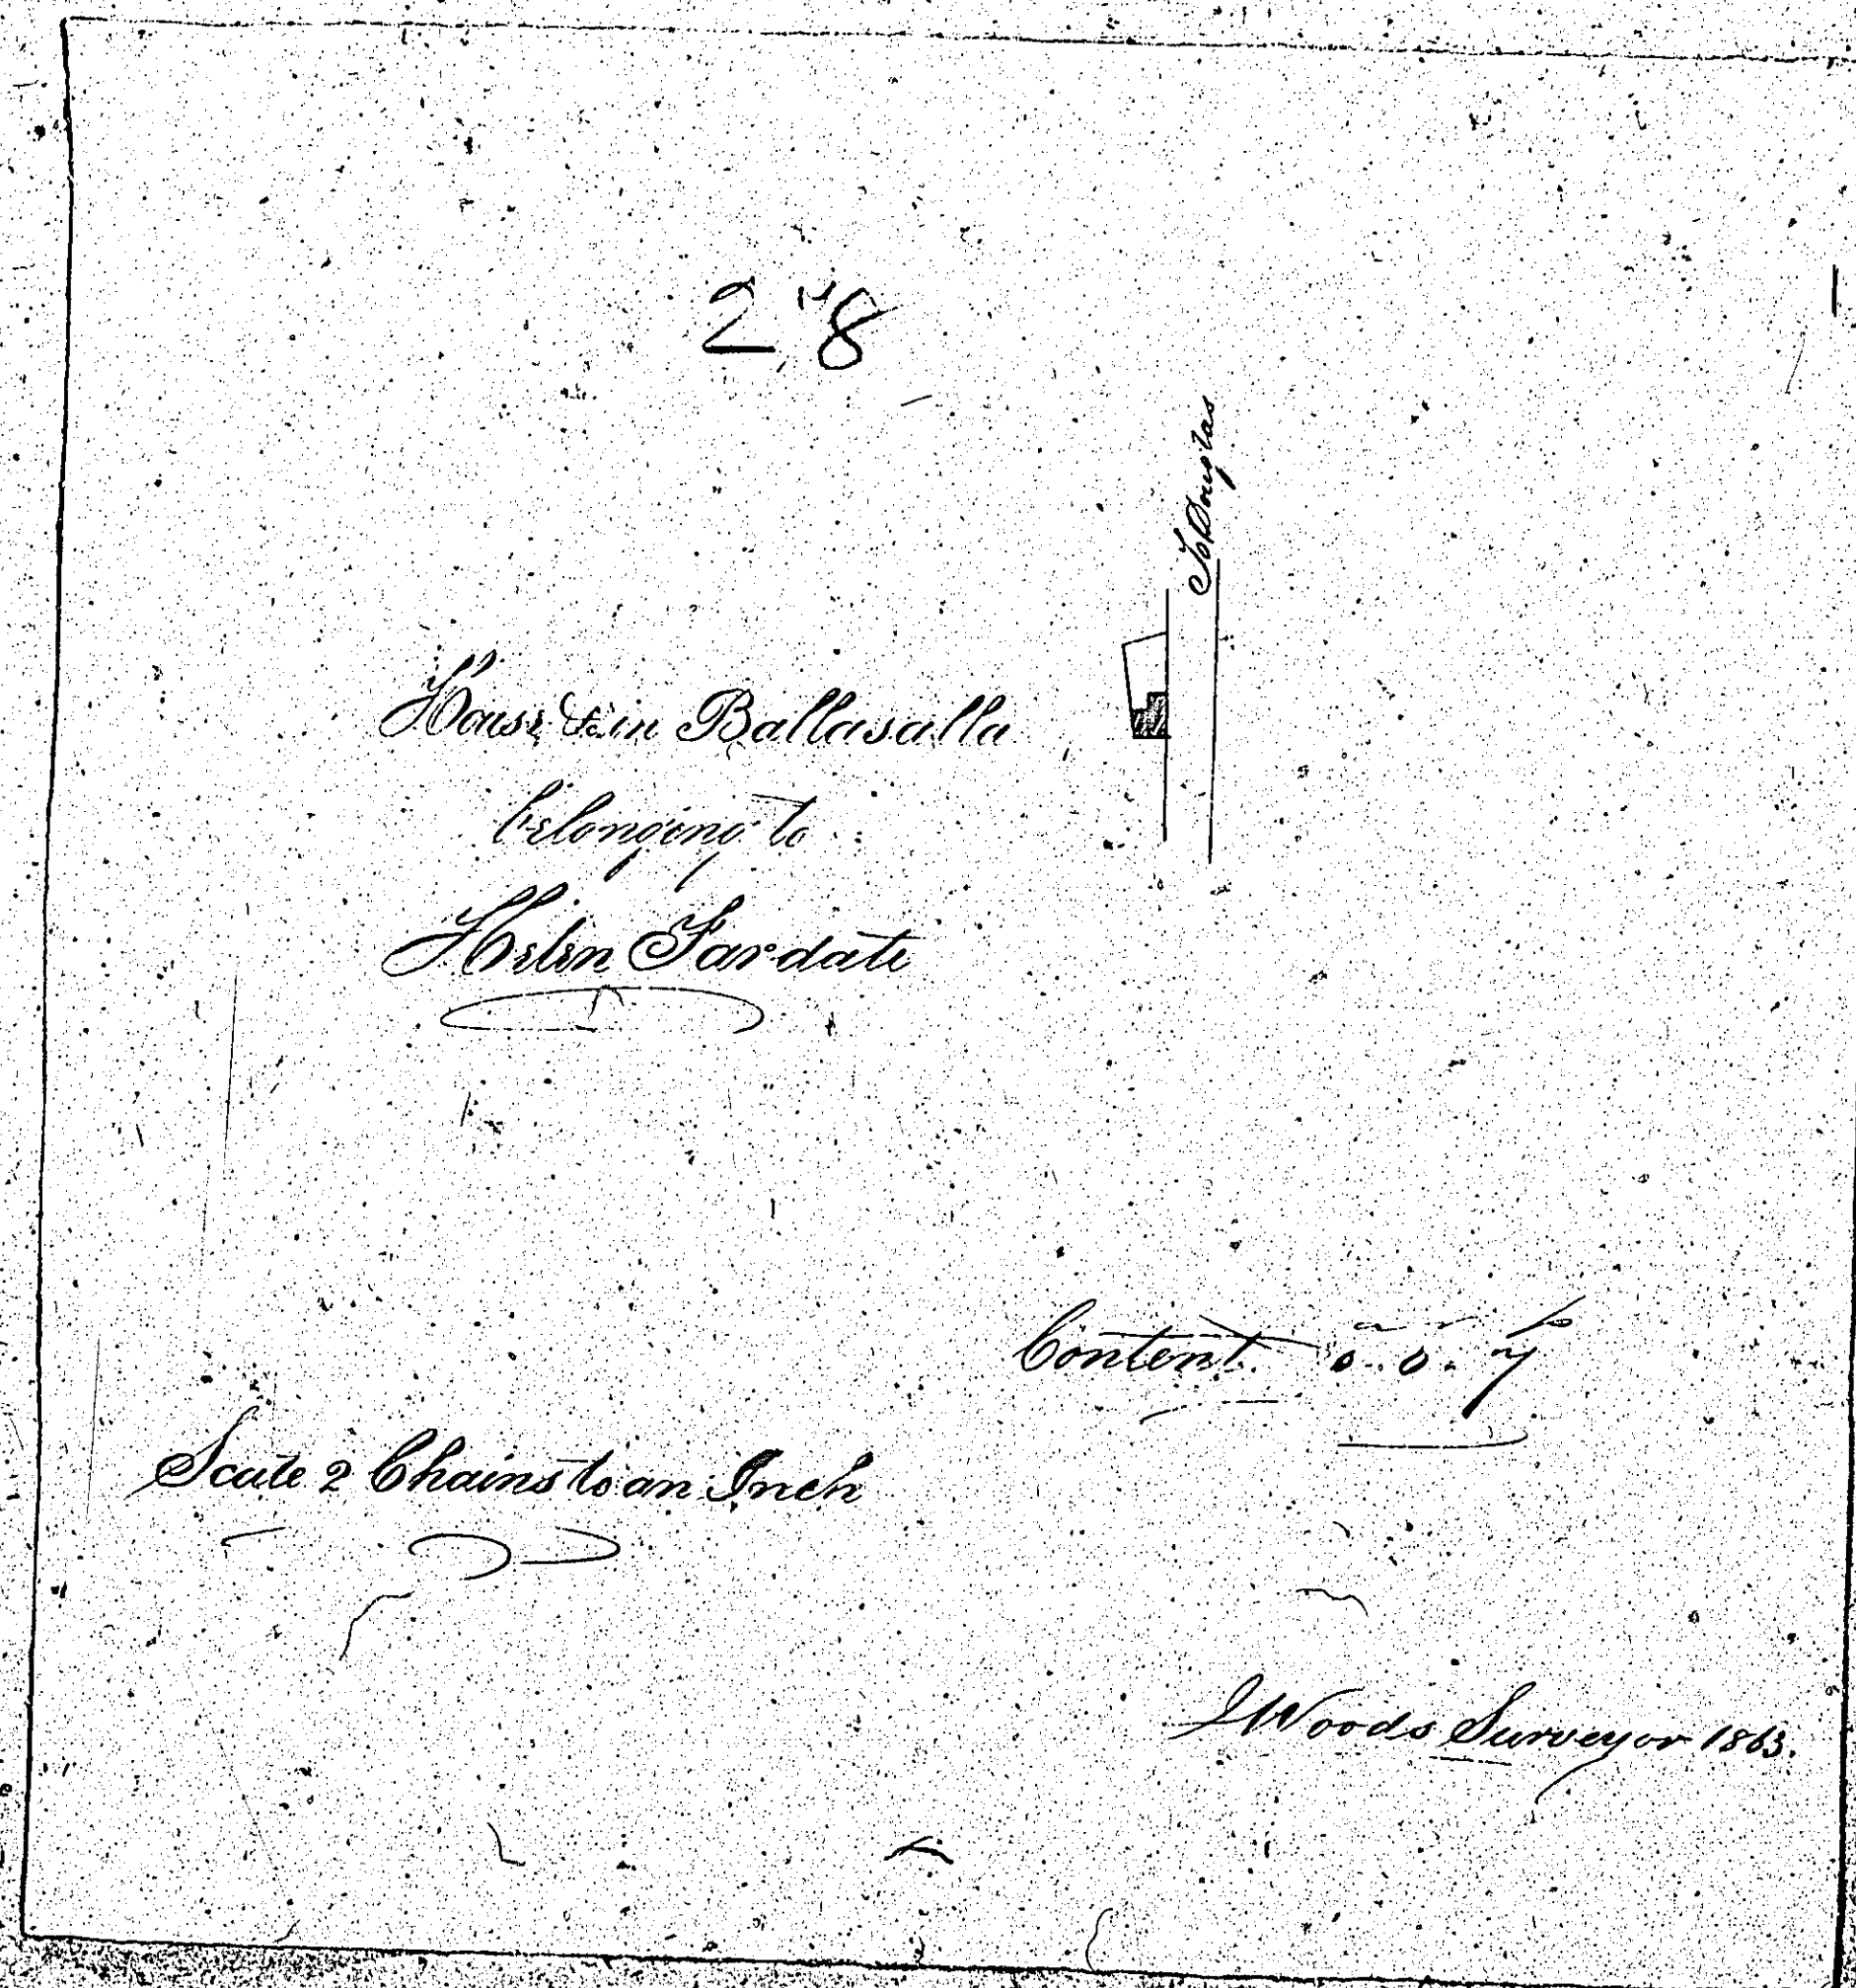 2 "8
To Douglas
House &c in Ballasalla
belonging to
Helen Fardate
a r p
Content. 0.. 0. 7
Scale 2 Chains to an Inch
J Woods Surveyor 1863.